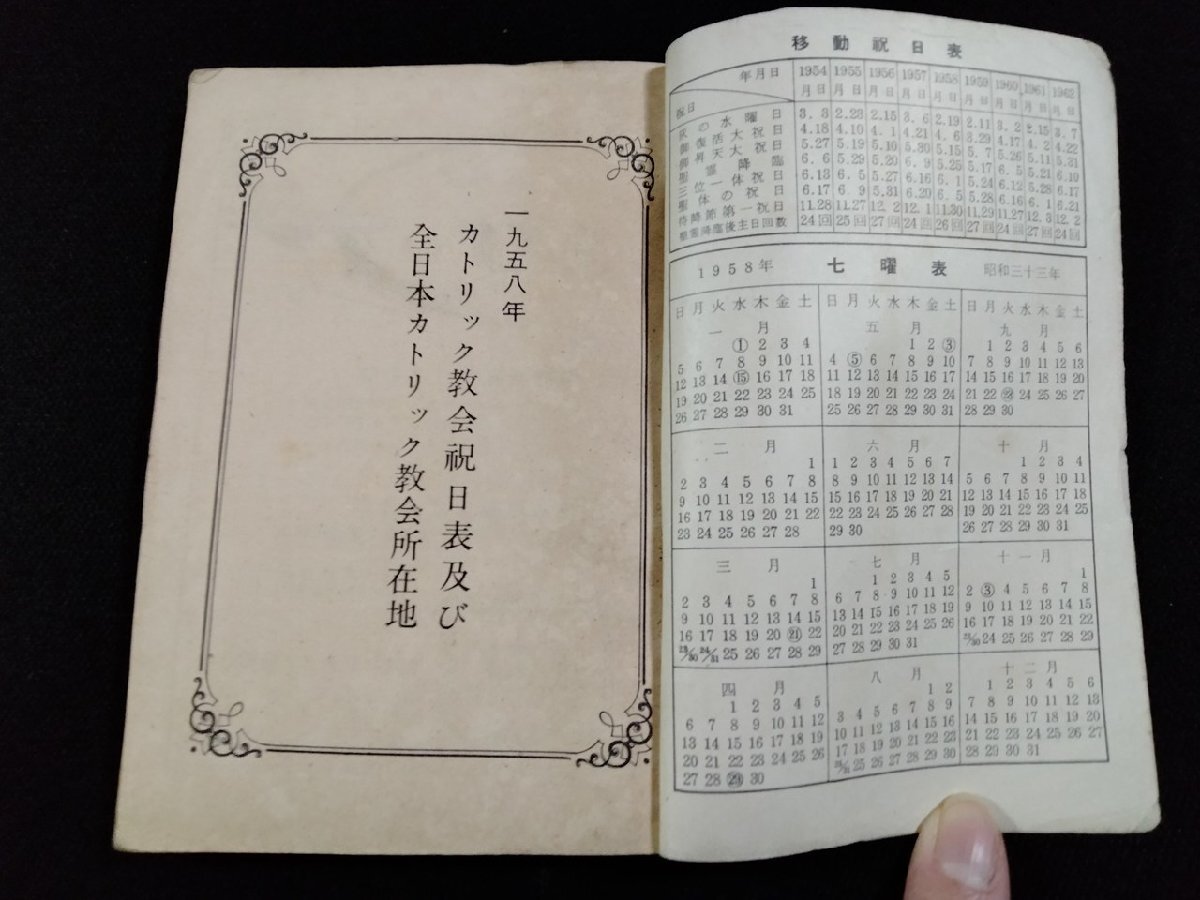 一九五八年
カトリック教会祝日表及び
全日本カトリック教会所在地
移動祝日表
年月日 1954 1955 1956 1957 1958 1959 1960 1961 1962
祝日 月日 月日 月日 月日 月日 月日 月日 月日 月日
灰の水曜日 3.3 2.23 2.15 3.6 2.19 2.11 3.2 2.15 3.7
御復活大祝日 4.18 4.10 4.1 4.21 4.6 3.29 4.17 4.2 4.22
御昇天大祝日 5.27 5.19 5.10 5.30 5.15 5.7 5.26 5.11 5.31
聖霊降臨 6.6 5.29 5.20 6.9 5.25 5.17 6.5 5.21 6.10
三位一体祝日 6.13 6.5 5.27 6.16 6.1 5.24 6.12 5.28 6.17
聖体の祝日 6.17 6.9 5.31 6.20 6.5 5.28 6.16 6.1 6.21
待降節第一祝日 11.28 11.27 12.2 12.1 11.30 11.29 11.27 12.3 12.2
聖霊降臨後主日回数 24回 25回 27回 24回 26回 27回 24回 27回 24回
1958年 七曜表 昭和三十三年
日月火水木金土
一月
① 2 3 4
5 6 7 8 9 10 11
12 13 14 ⑮ 16 17 18
19 20 21 22 23 24 25
26 27 28 29 30 31
二月
1
2 3 4 5 6 7 8
9 10 11 12 13 14 15
16 17 18 19 20 21 22
23 24 25 26 27 28
三月
1
2 3 4 5 6 7 8
9 10 11 12 13 14 15
16 17 18 19 20 ㉑ 22
23/30 24/31 25 26 27 28 29
四月
1 2 3 4 5
6 7 8 9 10 11 12
13 14 15 16 17 18 19
20 21 22 23 24 25 26
27 28 ㉙ 30
日月火水木金土
五月
1 2 ③
4 ⑤ 6 7 8 9 10
11 12 13 14 15 16 17
18 19 20 21 22 23 24
25 26 27 28 29 30 31
六月
1 2 3 4 5 6 7
8 9 10 11 12 13 14
15 16 17 18 19 20 21
22 23 24 25 26 27 28
29 30
七月
1 2 3 4 5
6 7 8 9 10 11 12
13 14 15 16 17 18 19
20 21 22 23 24 25 26
27 28 29 30 31
八月
1 2
3 4 5 6 7 8 9
10 11 12 13 14 15 16
17 18 19 20 21 22 23
24/31 25 26 27 28 29 30
日月火水木金土
九月
1 2 3 4 5 6
7 8 9 10 11 12 13
14 15 16 17 18 19 20
21 22 ㉓ 24 25 26 27
28 29 30
十月
1 2 3 4
5 6 7 8 9 10 11
12 13 14 15 16 17 18
19 20 21 22 23 24 25
26 27 28 29 30 31
十一月
1
2 ③ 4 5 6 7 8
9 10 11 12 13 14 15
16 17 18 19 20 21 22
23/30 24 25 26 27 28 29
十二月
1 2 3 4 5 6
7 8 9 10 11 12 13
14 15 16 17 18 19 20
21 22 23 24 25 26 27
28 29 30 31